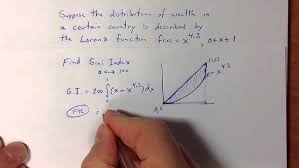 Suppose the distribution of wealth in
a certain country is described by
the Lorenz function f(x) = x^4.3, 0≤x≤1
Find Gini Index
0 ↔ 100
G.I. = 200 ∫₀¹ (x - x^4.3) dx
FTC =
(1,1)
x^4.3
0,0